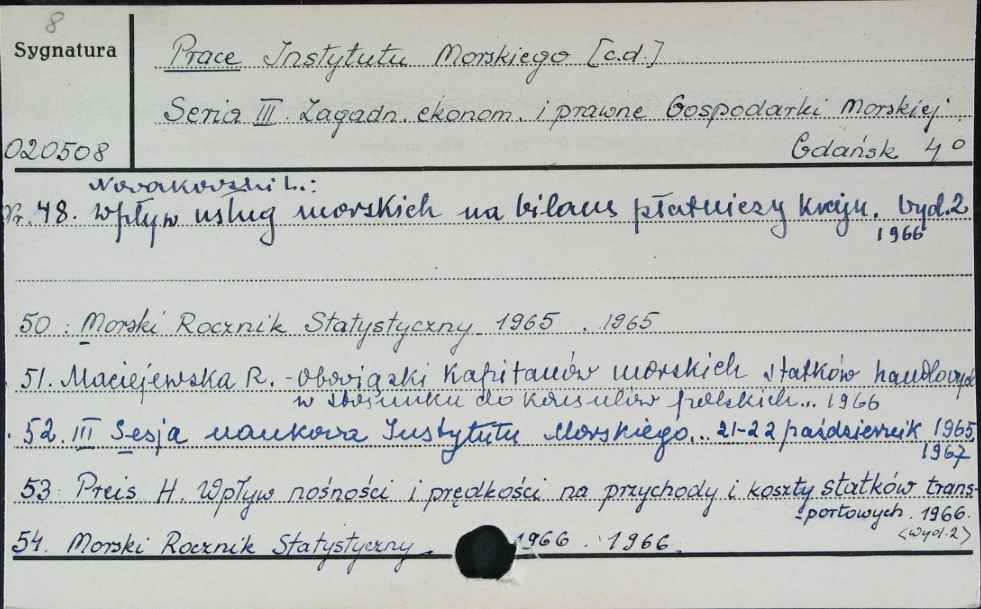 8
Sygnatura
Prace Instytutu Morskiego [c.d.]
Seria III. Zagadn. ekonom. i prawne Gospodarki Morskiej.
020508
Gdańsk 4°
Nowakowski L.:
Nr. 48. Wpływ usług morskich na bilans płatniczy kraju. Wyd.2
1966
50. Morski Rocznik Statystyczny 1965. 1965
51. Maciejewska R. - Obowiązki Kapitanów morskich statków handlowych
w stosunku do konsulów polskich... 1966
52. III Sesja naukowa Instytutu Morskiego... 21-22 październik 1965.
1967
53. Preis H. Wpływ nośności i prędkości na przychody i koszty statków trans-
-portowych. 1966.
<wyd.2>
54. Morski Rocznik Statystyczny. 1966. 1966.